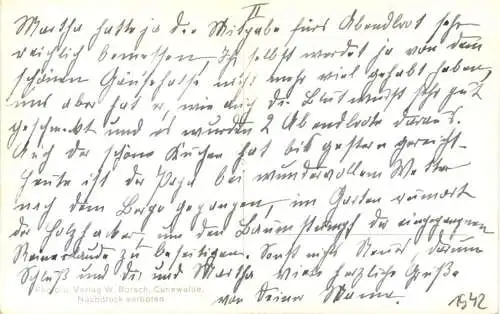 II
Martha hatte ja die Mitgabe fürs Abendbrot sehr
reichlich bemessen, Ihr selbst werdet ja von dem
schönen Gänse nicht mehr viel gehabt haben,
uns aber hat er, wie auch die Blutwurst sehr gut
geschmeckt und es wurden 2 Abendbrote daraus.
Auch der schöne Kuchen hat bis gestern gereicht.
Heute ist der Papa bei wundervollem Wetter
nach dem Berge gegangen, im Garten
der Holzhacker um den Baumstumpf der eingegangenen
zu beseitigen. Sonst nichts Neues, darum
Schluß und Dir und Martha viele herzliche Grüße
von Deiner Mama.
1942
Photo u. Verlag W. Borsch, Cunewalde,
Nachdruck verboten